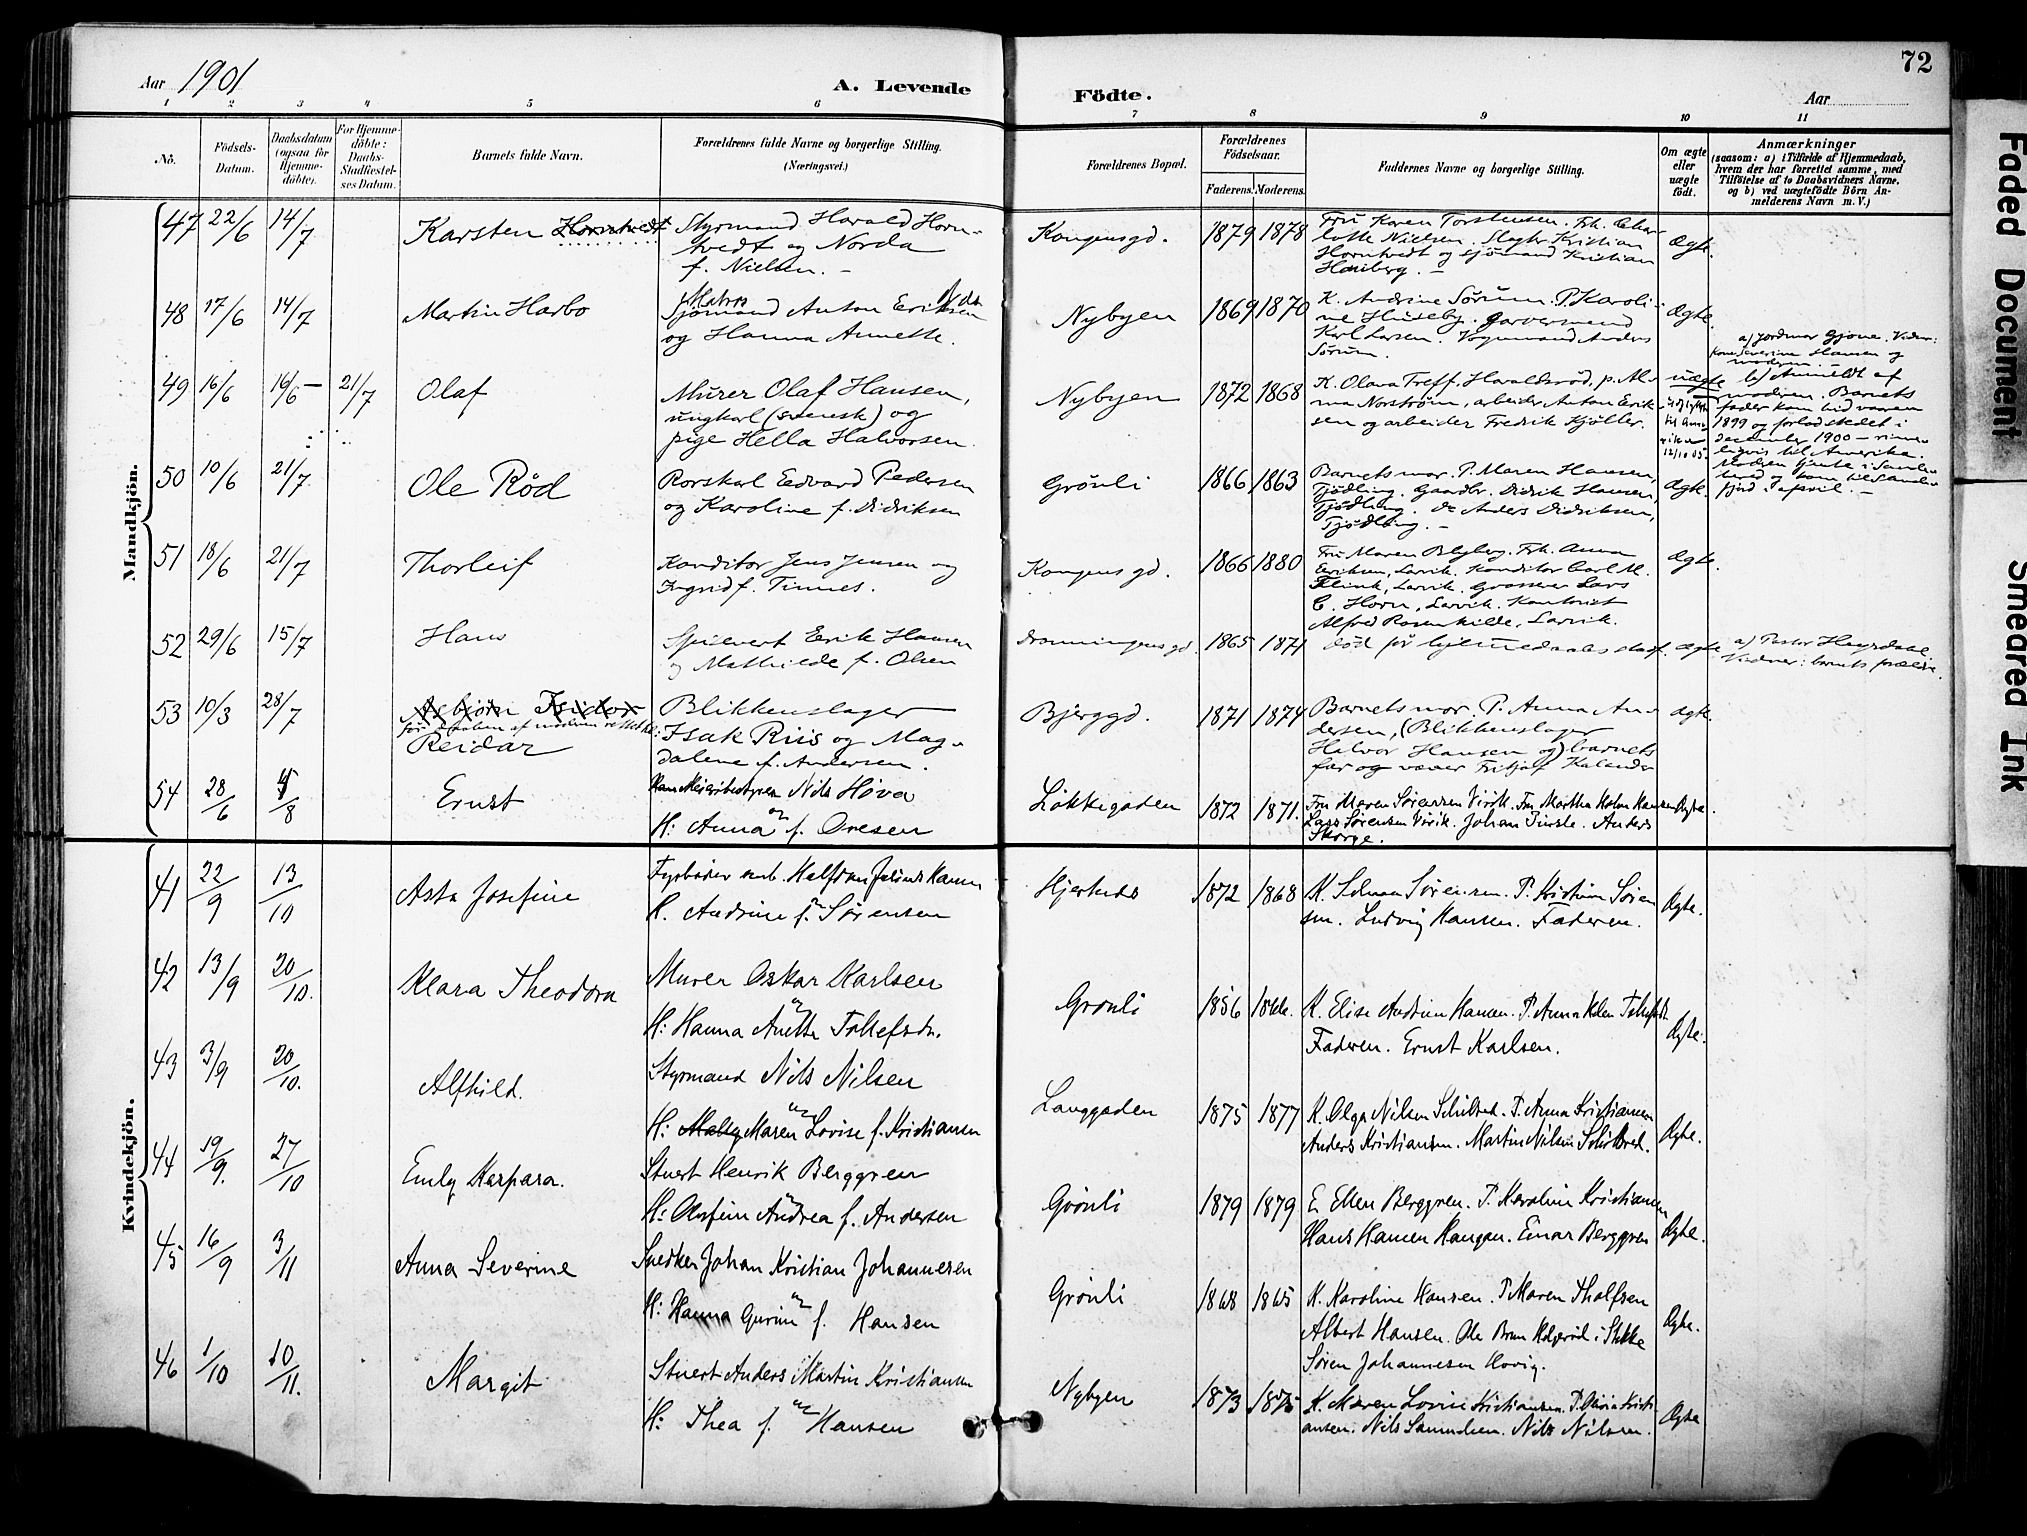 72
Aar 1901
A. Levende
Födte.
Aar
1 2 3 4 5 6 7 8 9 10 11
No.
Födsels-
Datum.
Daabsdatum
(ogsaa for
Hjemme-
döbte).
For Hjemme-
döbte:
Daabs-
Stadfæstel-
ses Datum.
Barnets fulde Navn.
Forældrenes fulde Navne og borgerlige Stilling.
(Næringsvei.)
Forældrenes Bopæl.
Forældrenes
Födselsaar.
Faderens. Moderens.
Faddernes Navne og borgerlige Stilling.
Om ægte
eller
uægte
födt.
Anmærkninger
(saasom: a) i Tilfælde af Hjemmedaab,
hvem der har forrettet samme, med
Tilföielse af to Daabsvidners Navne,
og b) ved uægtefödte Börn An-
melderens Navn m. V.)
Mandkjön.
47 22/6 14/7 Karsten Horntvedt
Styrmand Harald Horn-
tvedt og Norda
f. Nielsen. -
Kongensgd. 1879 1878
Fru Karen Torstensen. Frk. Char-
lotte Nielsen. Slagter Kristian
Horntvedt og sjömand Kristian
Hauberg. -
Ægte.
48 17/6 14/7 Martin Harbo
Matros
Sjömand Anton Eriksen
og Hanna Annette.
Nybyen 1869 1870
K. Andrine Sørum. P. Karoli-
ne Huseby. Garversvend
Karl Larsen. Vognmand Anders
Sørum.
Ægte.
49 16/6 19/6 - 21/7 Olaf
Murer Olaf Hansen,
ungkarl (svensk) og
pige Hella Halvorsen.
Nybyen 1872 1868
K. Olava Treff, Haraldsröd, p. Al-
ma Norström, arbeider Anton Erik-
sen og arbeider Fredrik Kjöller.
uægte
12/10 05
a) Jordmor Gjone. Vidner:
Kone Severine Hansen og
moderen. -
b) Anmeldt af
moderen. Barnets
fader kom hid vaaren
1899 og forlod stedet i
december 1900 - rime-
ligvis til Amerika.
50 10/6 21/7 Ole Röd
Rorskarl Edvard Pedersen
og Karoline f. Didriksen
Grönli 1866 1863
Barnets mor. P. Maren Hansen,
Tjödling. Gaardbr. Didrik Hansen,
Tjödling. Do Anders Didriksen,
Tjödling. -
Ægte.
51 18/6 21/7 Thorleif
Konditor Jens Jensen og
Ingrid f. Tinnes.
Kongensgd. 1866 1880
Fru Maren Blyberg. Frk. Anna
Eriksen, Larvik. Konditor Carl M.
Flink, Larvik. Grosserer Lars
C. Horn, Larvik. Kontorist
Alfred Rosenkilde, Larvik.
Ægte.
52 29/6 15/7 Hans
Erik Hansen
og Mathilde f. Olsen
Dronningensgd. 1865 1871
död för hjemmedaabs stadf. Ægte
a) Pastor
Vidner: barnets forældre
53 10/3 28/7 Asbjörn Isidor
Reidar
Blikkenslager
Isak Riis og Mag-
dalene f. Andersen.
Bjerggd. 1871 1874
Barnets mor. P. Anna An-
dersen, (Blikkenslager
Halvor Hansen og) barnets
far og væver Fritjof Kalander
Ægte.
54 28/6 4/8 Ernst
Nils Höva
og
H: Anna f. Ovesen
Løkkegaden 1872 1871.
Fru Maren Sørensen Virik. Fru Martha Holm Hansen
Lars Sørensen Virik. Johan Pindsle. Anders
Skorge.
Ægte.
Kvindekjön.
41 22/9 13/10 Asta Josefine
Fyrbøder emb. Halfdan Julius Hansen
og
H. Andrine f. Sørensen
Hjertnes 1872 1868
K. Selma Sørensen. P. Kristine Søren
sen. Ludvig Hansen. Faderen.
Ægte.
42 13/9 20/10. Klara Theodora
Murer Oskar Karlsen
og
H: Hanna Anette Tollefsdr.
Grønli 1856
K. Elise Andrine Hansen. P. Anna Helene Tollefsdt.
Faderen. Ernst Karlsen.
Ægte.
43 3/9 20/10. Alfhild.
Styrmand Nils Nilsen
og
H: Maley Maren Lovise f. Kristiansen
Langgaden 1875 1877
K. Olga Nilsen Schilbred. P. Anna Kristiansen
Anders Kristiansen. Martin Nilsen Schilbred.
Ægte.
44 19/9. 27/10 Emly Kaspara.
Stuert Henrik Berggren
og
H: Olufine Andrea f. Andersen
Grønli 1879 1879
E Ellen Berggren. P. Karoline Kristiansen
Hans Hansen Haugan. Einar Berggren
Ægte.
45 16/9 3/11 Anna Severine
Snedker Johan Kristian Johannesen
og
H: Hanna Gurine f. Hansen
Grønli 1868 1865
K. Karoline Hansen. P. Maren Tholfsen
Albert Hansen. Ole Brun Holgerød i Stokke
Søren Johannesen Hovig.
Ægte.
46 1/10 10/11. Margit
Stuert Anders Martin Kristiansen
og
H: Thea f. Hansen
Nybyen 1873 1875
K. Maren Lovise Kristiansen. P. Olivia Kristi
ansen. Nils Samuelsen. Nils Nilsen.
Ægte
Faded Document
Smeared Ink